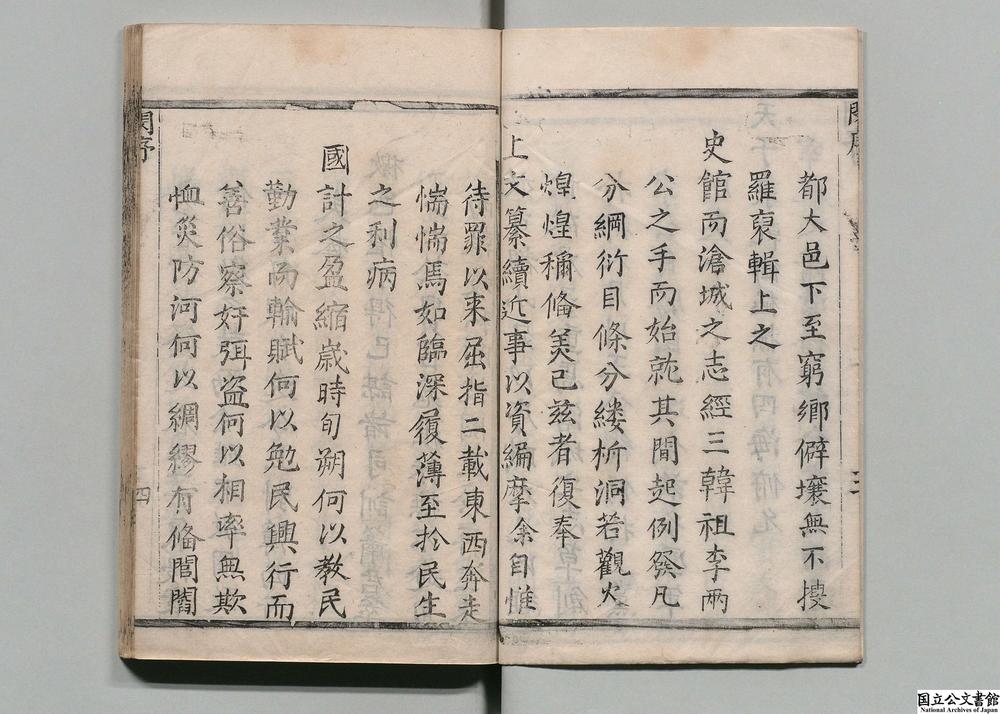 都大邑下至窮鄉僻壤無不摉
羅裒輯上之
史館而滄城之志經三韓祖李兩
公之手而始就其間起例發凡
分綱衍目條分縷析洞若觀火
煌煌稱俻美已兹者復奉
上文纂續近事以資編摩余自惟
待罪以来屈指二載東西奔走
惴惴焉如臨深履薄至扵民生
之利病
國計之盈縮歳時旬朔何以教民
勤業而輸賦何以勉民興行而
善俗察奸弭盗何以相率無欺
恤災防河何以綢繆有俻閭閻
三
四
国立公文書館
National Archives of Japan